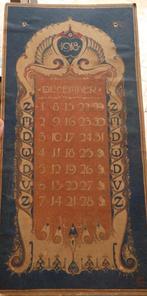 1918
DECEMBER
Z 1 8 15 22 29 Z
M 2 9 16 23 30 M
D 3 10 17 24 31 D
W 4 11 18 25 W
D 5 12 19 26 D
V 6 13 20 27 V
Z 7 14 21 28 Z